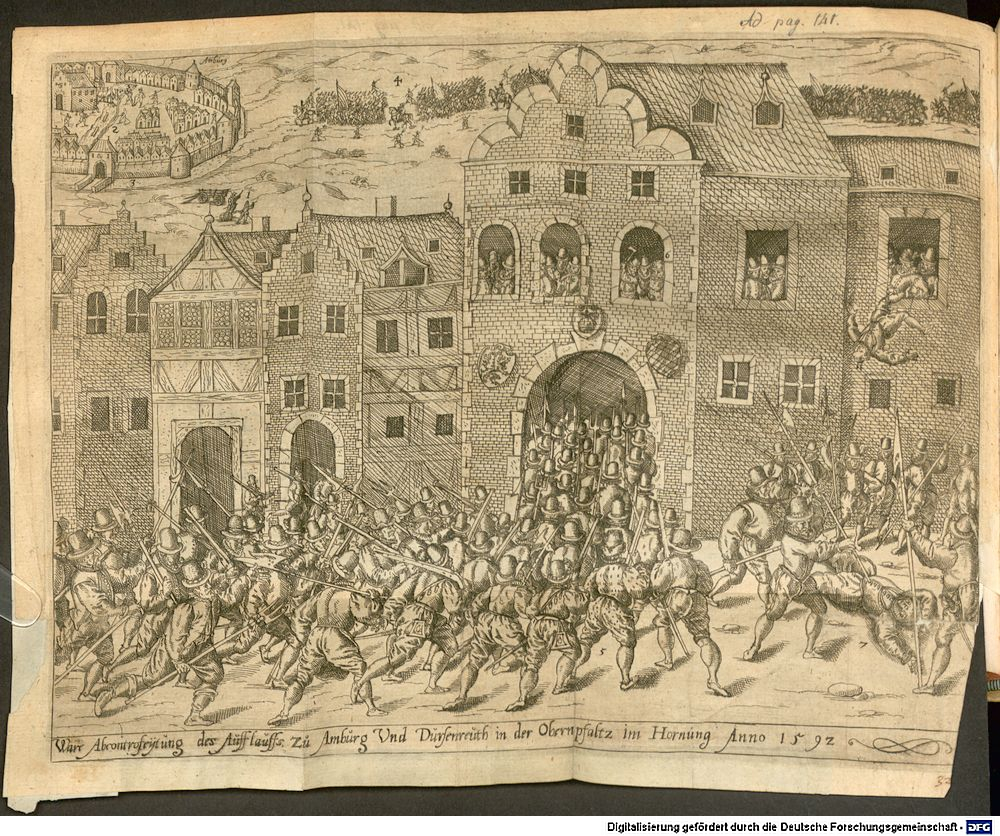 Ad pag. 141.
Amburg
2
3
4
6
5
7
Ware Abcontrofeytung des Aufflauffs, Zu Amburg Vnd Dursenreuth in der Obernpfaltz im Hornung Anno 1592
Digitalisierung gefördert durch die Deutsche Forschungsgemeinschaft - DFG